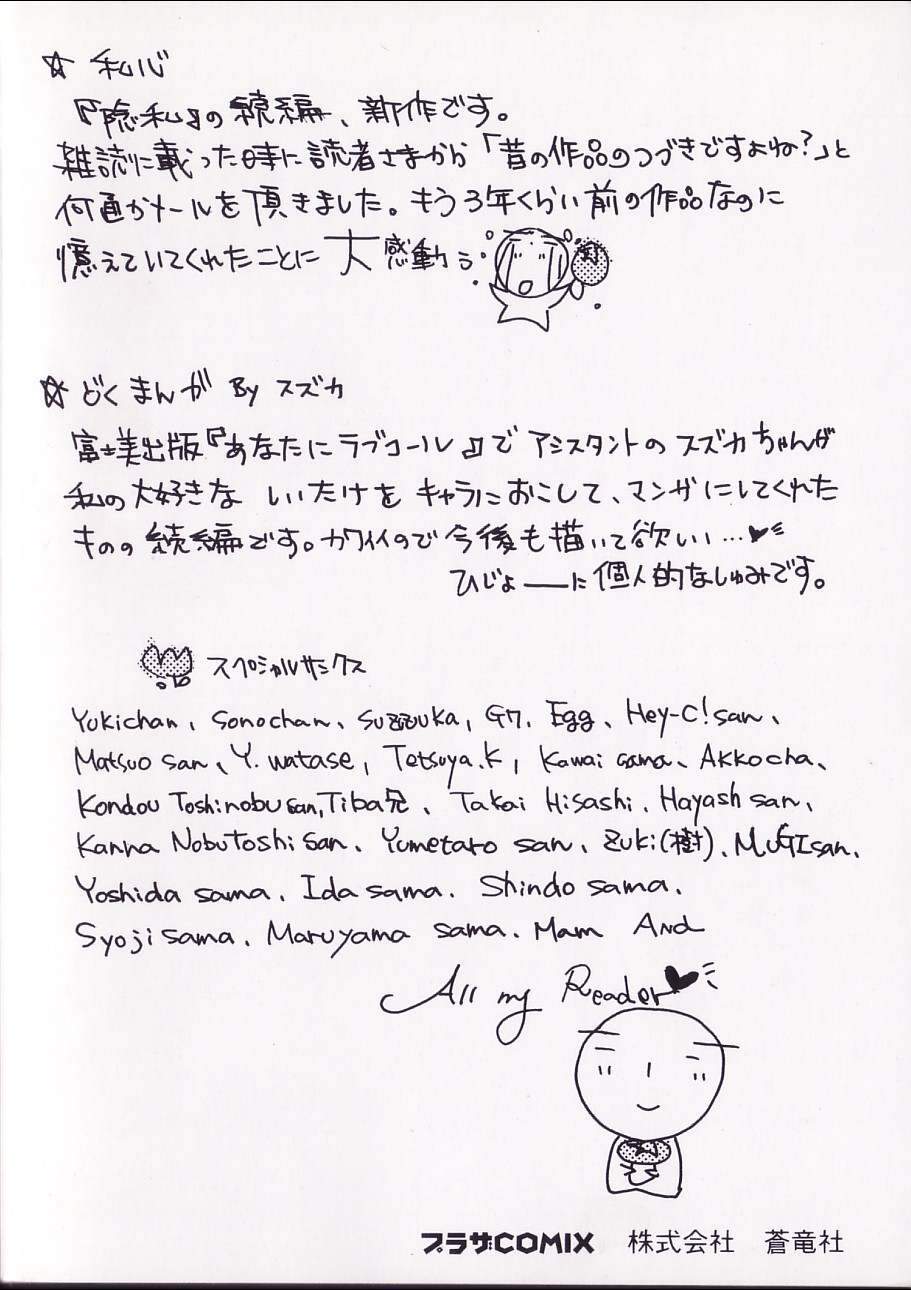 ☆ 私心
『隠私』の続編、新作です。
雑読に載った時に読者さまから「昔の作品のつづきですよね?」と
何通かメールを頂きました。もう3年くらい前の作品なのに
憶えていてくれたことに 大感動
☆ どくまんが By スズカ
富士美出版『あなたにラブコール』で アシスタントの スズカちゃんが
私の大好きな しいたけを キャラにおこして、マンガにしてくれた
ものの 続編です。カワイイので 今後も描いて欲しい…♥
ひじょーーに 個人的なしゅみです。
スペシャルサンクス
Yukichan、Sonochan、Suzzuka, G7. Egg、Hey-C! san、
Matsuo san、Y. watase, Tetsuya.K, Kawai sama、AKKocha、
Kondou Toshinobu san, Tiba兄、Takai Hisashi、Hayash san、
Kanna Nobutoshi san、Yumetaro san、Zuki(樹)、MUGI san、
Yoshida sama、Ida sama. Shindo sama.
Syoji sama、Maruyama sama. Mam And
All my Reader♥
プラザCOMIX 株式会社 蒼竜社